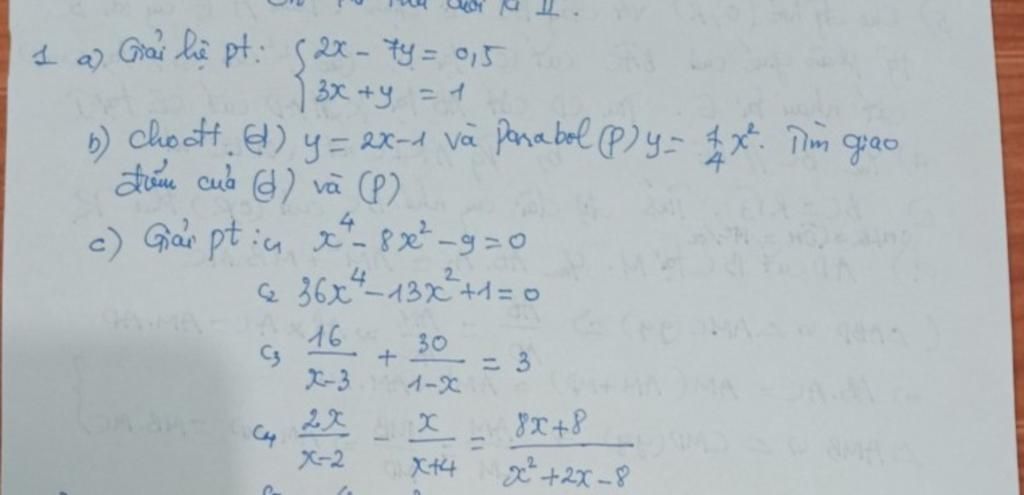 1 a) Giải hệ pt: { 2x - 7y = 0,5
3x + y = 1
b) Cho đt (d) y = 2x - 1 và Parabol (P) y = 1/4 x². Tìm giao
điểm của (d) và (P)
c) Giải pt: c1 x⁴ - 8x² - 9 = 0
c2 36x⁴ - 13x² + 1 = 0
c3 16/(x-3) + 30/(1-x) = 3
c4 2x/(x-2) - x/(x+4) = (8x+8)/(x²+2x-8)